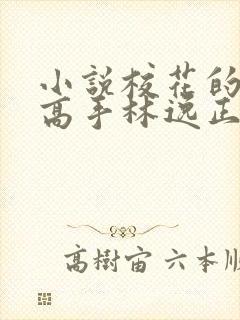 小說校花的
高手林逸正
高樹宙 六本順